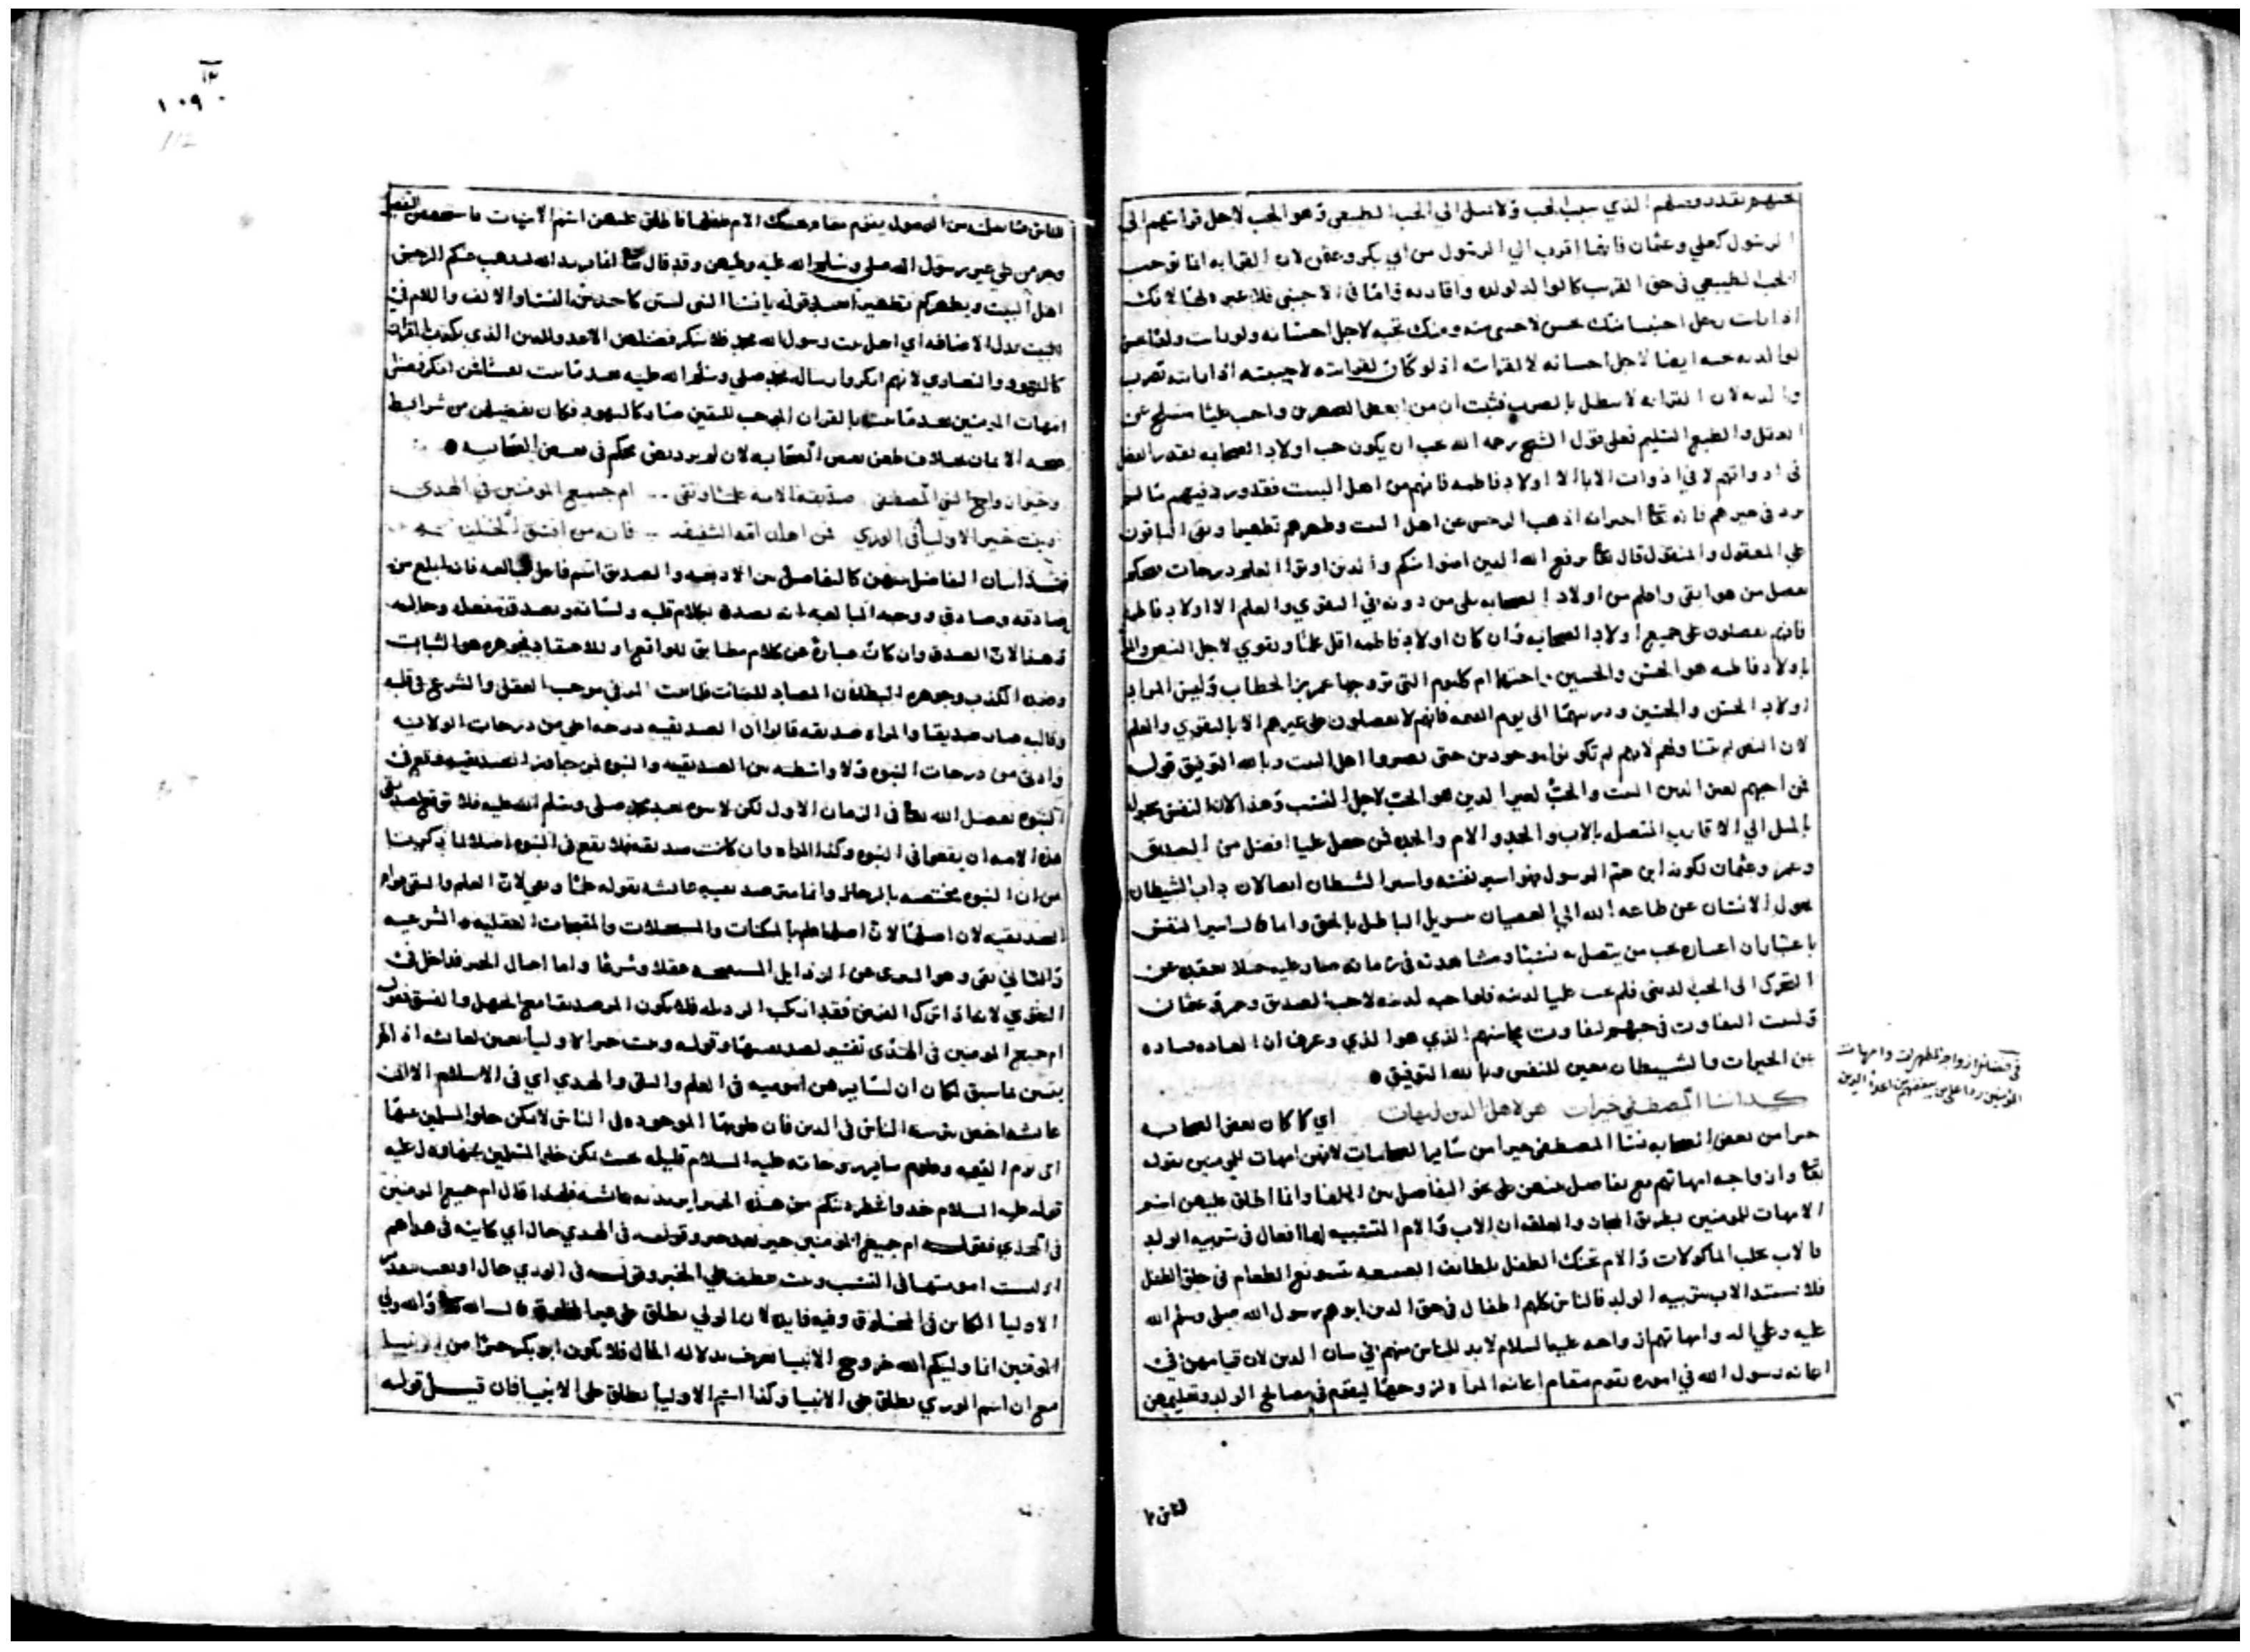 بقدر فضلهم الذي سبب الحب ولا تميل الي الحب الطبيعي وهو الحب لاجل قرابتهم الي
الرسول كعلي وعثمان فانهما اقرب الي الرسول من ابي بكر وعمر لان القرابه انما توجب
الحب الطبيعي في حق القريب كالوالد لولده واقاربه واما في الاجنبي فلا عبره لها لانك
اذا مات رجل اجنبيا منك محسن لاحسن منه ومنك تحبه لاجل احسانه ولو مات
لوالديه حبه ايضا لاجل احسانه لا لقرابته اذ لو كان لقرابته لاحببته اذا مات
والديه لان القرابه لا تبطل فثبت ان من ابغض الصهرين واحب عليا منسلخ عن
العقل والطبع السليم فعلي قول الشيخ رحمه الله يجب ان يكون حب اولاد الصحابه بقدر الفضل
في ادواتهم لا في ذوات الابا الا اولاد فاطمه فانهم من اهل البيت فقد ورد فيهم ما لم
يرد في غيرهم فانه تعا اخبر انه اذهب الرجس عن اهل البيت وطهرهم تطهيرا وبقي الباقون
علي المعقول والمنقول قال تعا يرفع الله الذين امنوا منكم والذين اوتوا العلم درجات فيحكم
بفضل من هو اتقي واعلم من اولاد الصحابه علي من دونه في التقوي والعلم الا اولاد فاطمه
فانهم يفضلون علي جميع اولاد الصحابه وان كان اولاد فاطمه اقل علما وتقوي لاجل النص والمراد
باولاد فاطمه هو الحسن والحسين واختهما ام كلثوم التي تزوجها عمر بن الخطاب وليس المراد
اولاد الحسن والحسين وذريتهما الي يوم القيمه فانهم لا يفضلون علي غيرهم الا بالتقوي والعلم
لان النص لم يتناولهم لانهم لم تكونوا موجودين حتي يصيروا اهل البيت وبالله التوفيق قوله
فمن احبهم لغير الدين البيت والحب لغير الدين هو الحب لاجل النسب وهذا لان النفس مجبوله
بالميل الي الاقارب المتصله بالاب والجد والام والجده فمن جعل عليا افضل من الصديق
وعمر وعثمان لكونه ابن عم الرسول فهو اسير نفسه واسير الشيطان ايضا لان داب الشيطان
يحول الانسان عن طاعه الله الي العصيان بتسويل الباطل بالحق وانما قال اسير النفس
باعتبار ان اعتباره بحب من يتصل به نسبا ومشاهدته في زمانه صار عليه حملا فقيده عن
التحرك الي الحب لديني فلم يحب عليا لدينه فلو احبه لدينه لاحب الصديق وعمر وعثمان
وليست التفاوت في حبهم لتفاوت بمحاسنهم الذي هو الذي وعرف ان العاده صاده
عن الخيرات والشيطان معين للنفس وبالله التوفيق
كذا نسا المصطفي خيرات هن لاهل الدين امهات اي كما كان بعض الصحابه
خيرا من بعض الصحابه نسا المصطفي خيرا من ساير الصحابيات لانهن امهات المومنين بقوله
تعا وازواجه امهاتهم مع تفاضل بينهن علي نحو التفاضل بين الخلفا وانما اطلق عليهن اسم
الامهات للمومنين بطريق المجاز والعلقه ان الاب والام المتسببه لهما افعال في تربيه الولد
فالاب يجلب الماكولات والام تحنك الطفل بلطائف الصنعه بتسويغ الطعام في حلق الطفل
فلا يستبد الاب بتربيه الولد فالناس كلهم اطفال في حق الدين ابوهم رسول الله صلي وسلم الله
عليه وعلي اله وامهاتهم ازواجه عليه السلام لا بد للناس منهم في بيان الدين لان قيامهن في
اعانه رسول الله في اموره تقوم مقام اعانه المراه لزوجها ليقوم في مصالح الولد وتعليمهن
للناس ما
في فضائل ازواجه المطهرات وامهات
المومنين ردا علي من يبغضهن من اعداء الدين
١٠٩٠
112
للناس ما سمعنه من الرسول يقوم مقام تحنيك الام طفلها فاطلق عليهن اسم الامهات
وحرمن علي غير رسول الله صلي وسلم الله عليه وعليهن وقد قال تعا انما يريد الله ليذهب عنكم الرجس
اهل البيت ويطهركم تطهيرا بعد قوله يا نسا النبي لستن كاحد من النسا والالف واللام في
البيت بدل الاضافه اي اهل بيت رسول الله محمد فلا ينكر فضلهن الا عدو الدين الذي يكذب القران
كاليهود والنصاري لانهم انكروا رساله محمد صلي وسلم الله عليه بعد ما ثبت فمن انكر فضل
امهات المومنين بعد ما ثبت بالقران الموجب لليقين صار كاليهود فكان تفضيلهن من شرائط
صحه الايمان بخلاف طعن بعض الصحابه لان لم يرد نص محكم في بعض الصحابه
وخير ازواج النبي المصطفي صديقه الامه علما وتقي ام جميع المومنين في الهدي
وبنت خير الاوليا في الوري فمن اهان امه الشفيقه فانه من افسق الخليقه
هذا بيان الفاضل بينهن كالتفاضل بين الاربعه والصديق اسم فاعل للمبالغه فانه ابلغ من
صادقه وصادق ووجه المبالغه انه يصدق بكلام قلبه ولسانه ويصدق بفعله وحاله
وهذا لان الصدق وان كان عباره عن كلام مطابق للواقع او للاعتقاد فجوهره هو الثبات
وضده الكذب وجوهره البطلان المضاد للثبات فاذا ثبت المر في موجب العقل والشرع في قلبه
وقالبه صار صديقا والمراه صديقه قالوا ان الصديقيه درجه اعلي من درجات الولايه
وادني من درجات النبوه ولا واسطه بين الصديقيه والنبوه فمن جاوز الصديقيه وقع في
النبوه بفضل الله تعا في الزمان الاول لكن لا نبي بعد محمد صلي وسلم الله عليه فلا يتوقع لصديقي
هذه الامه ان يقعوا في النبوه وكذا المراه وان كانت صديقه فلا يقع في النبوه اصلا لما ذكرنا
من ان النبوه مختصه بالرجال وانما بين صديقيه عائشه بقوله علما وتقي لان العلم والتقي
الصديقيه لان اصلها لان اصلها علم بالممكنات والمستحيلات والمقبحات العقليه والشرعيه
والثاني تقي وهو التبري عن الرذايل المستقبحه عقلا وشرعا واما اعمال الخير فداخل في
التقوي لانه اذا ترك الفرض فقد ارتكب الرذيله فلا يكون المر صديقا مع الجهل والفسق فقوله
ام جميع المومنين في الهدي تفسير لصديقيتها وقوله وبنت خير الاوليا تعيين لعائشه اذ لو لم
يتبين بما سبق لكان ان لساير هن اموميه في العلم والتقي والهدي اي في الاسلام الا ان
عائشه اخص بتربيه الناس في الدين فان علومها الموجوده في الناس لا يمكن خلو المسلمين عنها
الي يوم القيمه وعلوم ساير زوجاته عليه السلام قليله بحيث يمكن خلو المسلمين عنها ودل عليه
قوله عليه السلام خذوا شطر دينكم من هذه الحميرا يريد به عائشه فلهذا قال ام جميع المومنين
في الهدي فقوله ام جميع المومنين خبر بعد خبر وقوله في الهدي حال اي كاينه في هداهم
اي ليست امومتها في النسب وبنت عطف علي الخبر وقوله في الوري حال او نعت
الاوليا الكاين في المخلوق وفيه فايده لان الولي يطلق علي قال الله تعا والله ولي
المومنين انما وليكم الله خروج الانبيا يعرف بدلاله الحال فلا يكون ابو بكر خيرا من الانبيا
مع ان اسم الوري يطلق علي الانبيا وكذا اسم الاوليا يطلق علي الانبيا فان قيل قوله